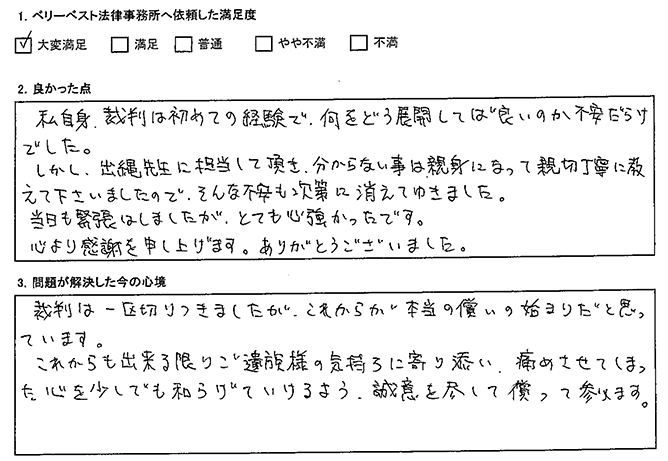 1. ベリーベスト法律事務所へ依頼した満足度
☑ 大変満足 □ 満足 □ 普通 □ やや不満 □ 不満
2. 良かった点
私自身、裁判は初めての経験で、何をどう展開しては良いのか不安だらけ
でした。
しかし、出縄先生に担当して頂き、分からない事は親身になって親切丁寧に教
えて下さいましたので、そんな不安も次第に消えてゆきました。
当日も緊張はしましたが、とても心強かったです。
心より感謝を申し上げます。ありがとうございました。
3. 問題が解決した今の心境
裁判は一区切りつきましたが、これからが本当の償いの始まりだと思っ
ています。
これからも出来る限りご遺族様の気持ちに寄り添い、痛めさせてしまっ
た心を少しでも和らげていけるよう、誠意を尽して償って参ります。